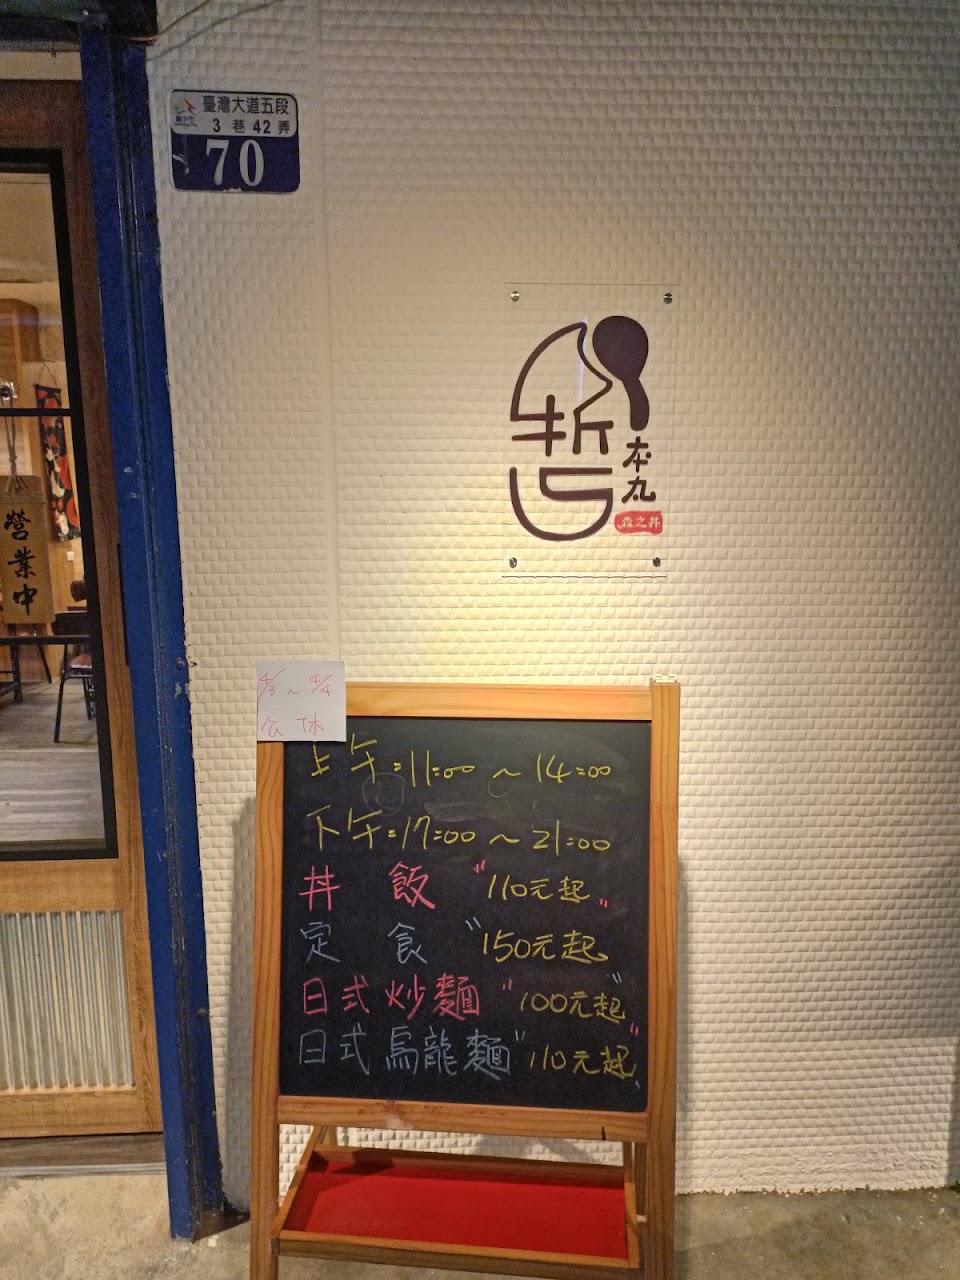 臺灣大道五段
3 巷 42 弄
70
哲
本丸
森之丼
營業中
4/3 ~ 4/4
公休
上午:11:00 ~ 14:00
下午:17:00 ~ 21:00
丼 飯 "110元起"
定 食 "150元起"
日式炒麵 "100元起"
日式烏龍麵 "110元起"